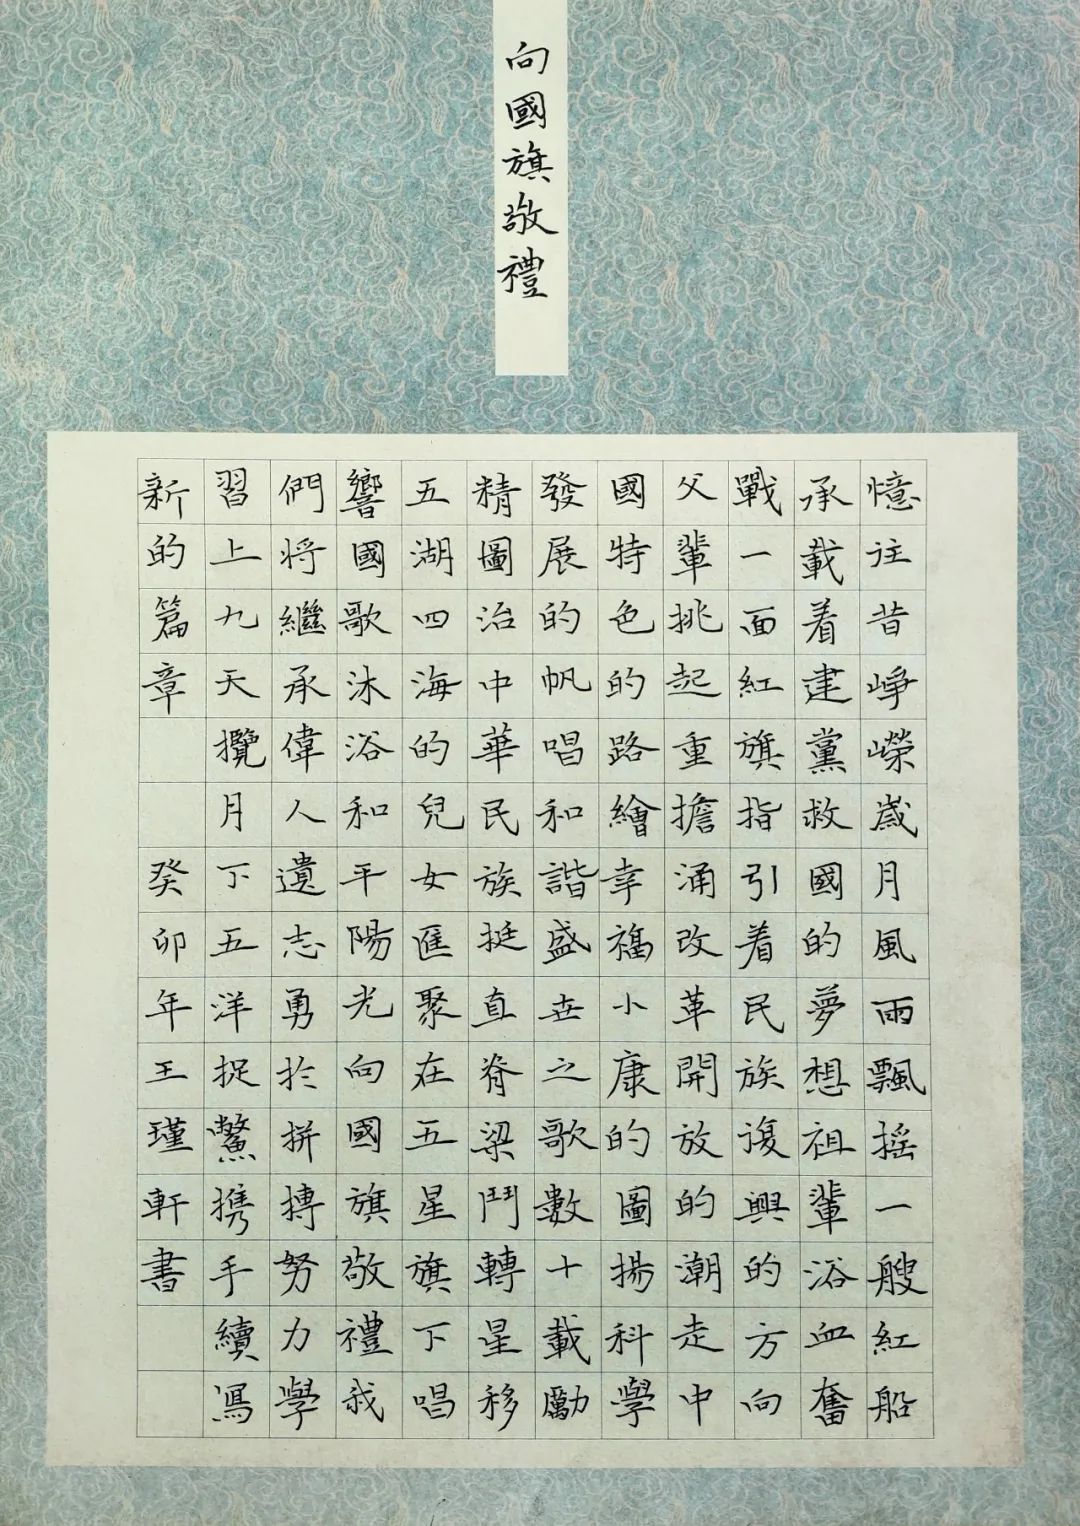 向國旗敬禮
憶往昔崢嶸歲月風雨飄搖一艘紅船
承載着建黨救國的夢想祖輩浴血奮
戰一面紅旗指引着民族復興的方向
父輩挑起重擔涌改革開放的潮走中
國特色的路繪幸福小康的圖揚科學
發展的帆唱和諧盛世之歌數十載勵
精圖治中華民族挺直脊梁鬥轉星移
五湖四海的兒女匯聚在五星旗下唱
響國歌沐浴和平陽光向國旗敬禮我
們將繼承偉人遺志勇於拼搏努力學
習上九天攬月下五洋捉鱉攜手續寫
新的篇章
癸卯年王瑾軒書